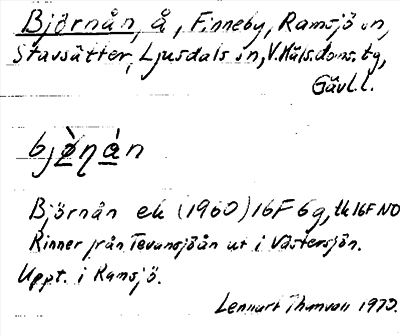 Björnån, å, Finneby, Ramsjö sn,
Stavsätter, Ljusdals sn, V. Häls. doms. tg,
Gävl.l.
bjö̀ŋàn
Björnån ek (1960) 16F 6g, tk 16F NO
Rinner från Tevansjöån ut i Västersjön.
Uppt. i Ramsjö.
Lennart Thunvall 1970.